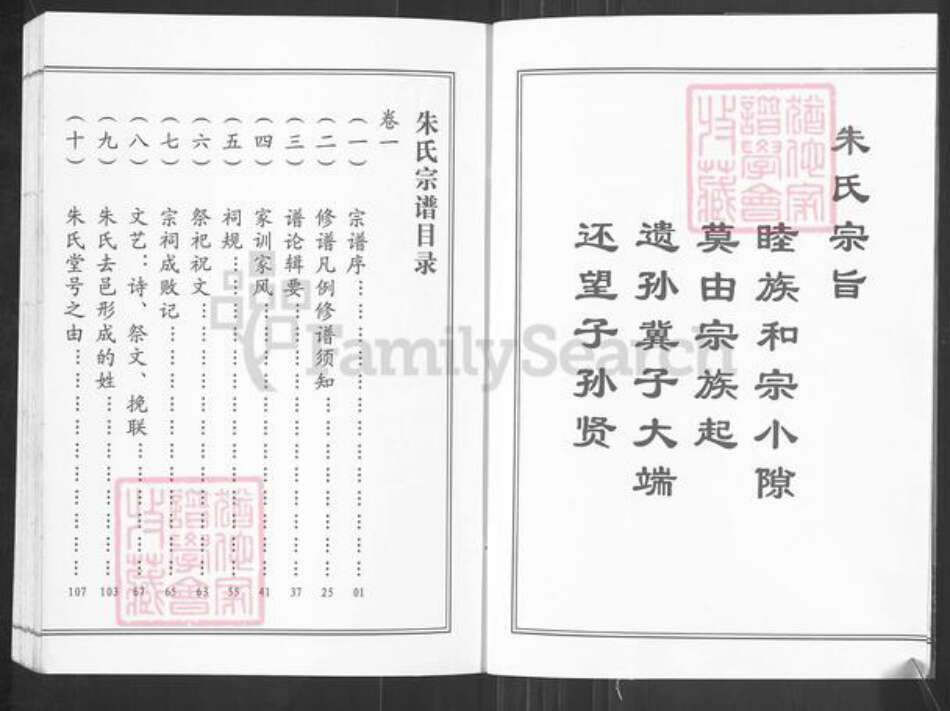 朱氏宗旨
睦族和宗小隙
莫由宗族起
遗孙冀子大端
还望子孙贤
朱氏宗谱目录
卷一
（一） 宗谱序 01
（二） 修谱凡例修谱须知 25
（三） 谱论辑要 37
（四） 家训家风 41
（五） 祠规 55
（六） 祭祀祝文 63
（七） 宗祠成败记 65
（八） 文艺：诗、祭文、挽联 67
（九） 朱氏去邑形成的姓 103
（十） 朱氏堂号之由 107
FamilySearch